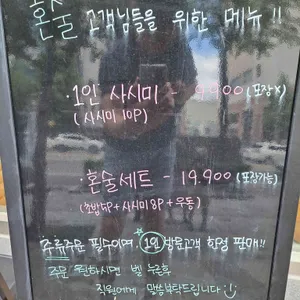 혼술 고객님들을 위한 메뉴 !!
· 1인 사시미 - 9.900 (포장X)
( 사시미 10P )
· 혼술세트 - 19.900 (포장가능)
(초밥5P+사시미8P+우동)
주류주문 필수이며, 1인 방문고객 한정 판매!!
주문 원하시면 벨 누른후
직원에게 말씀부탁드립니다